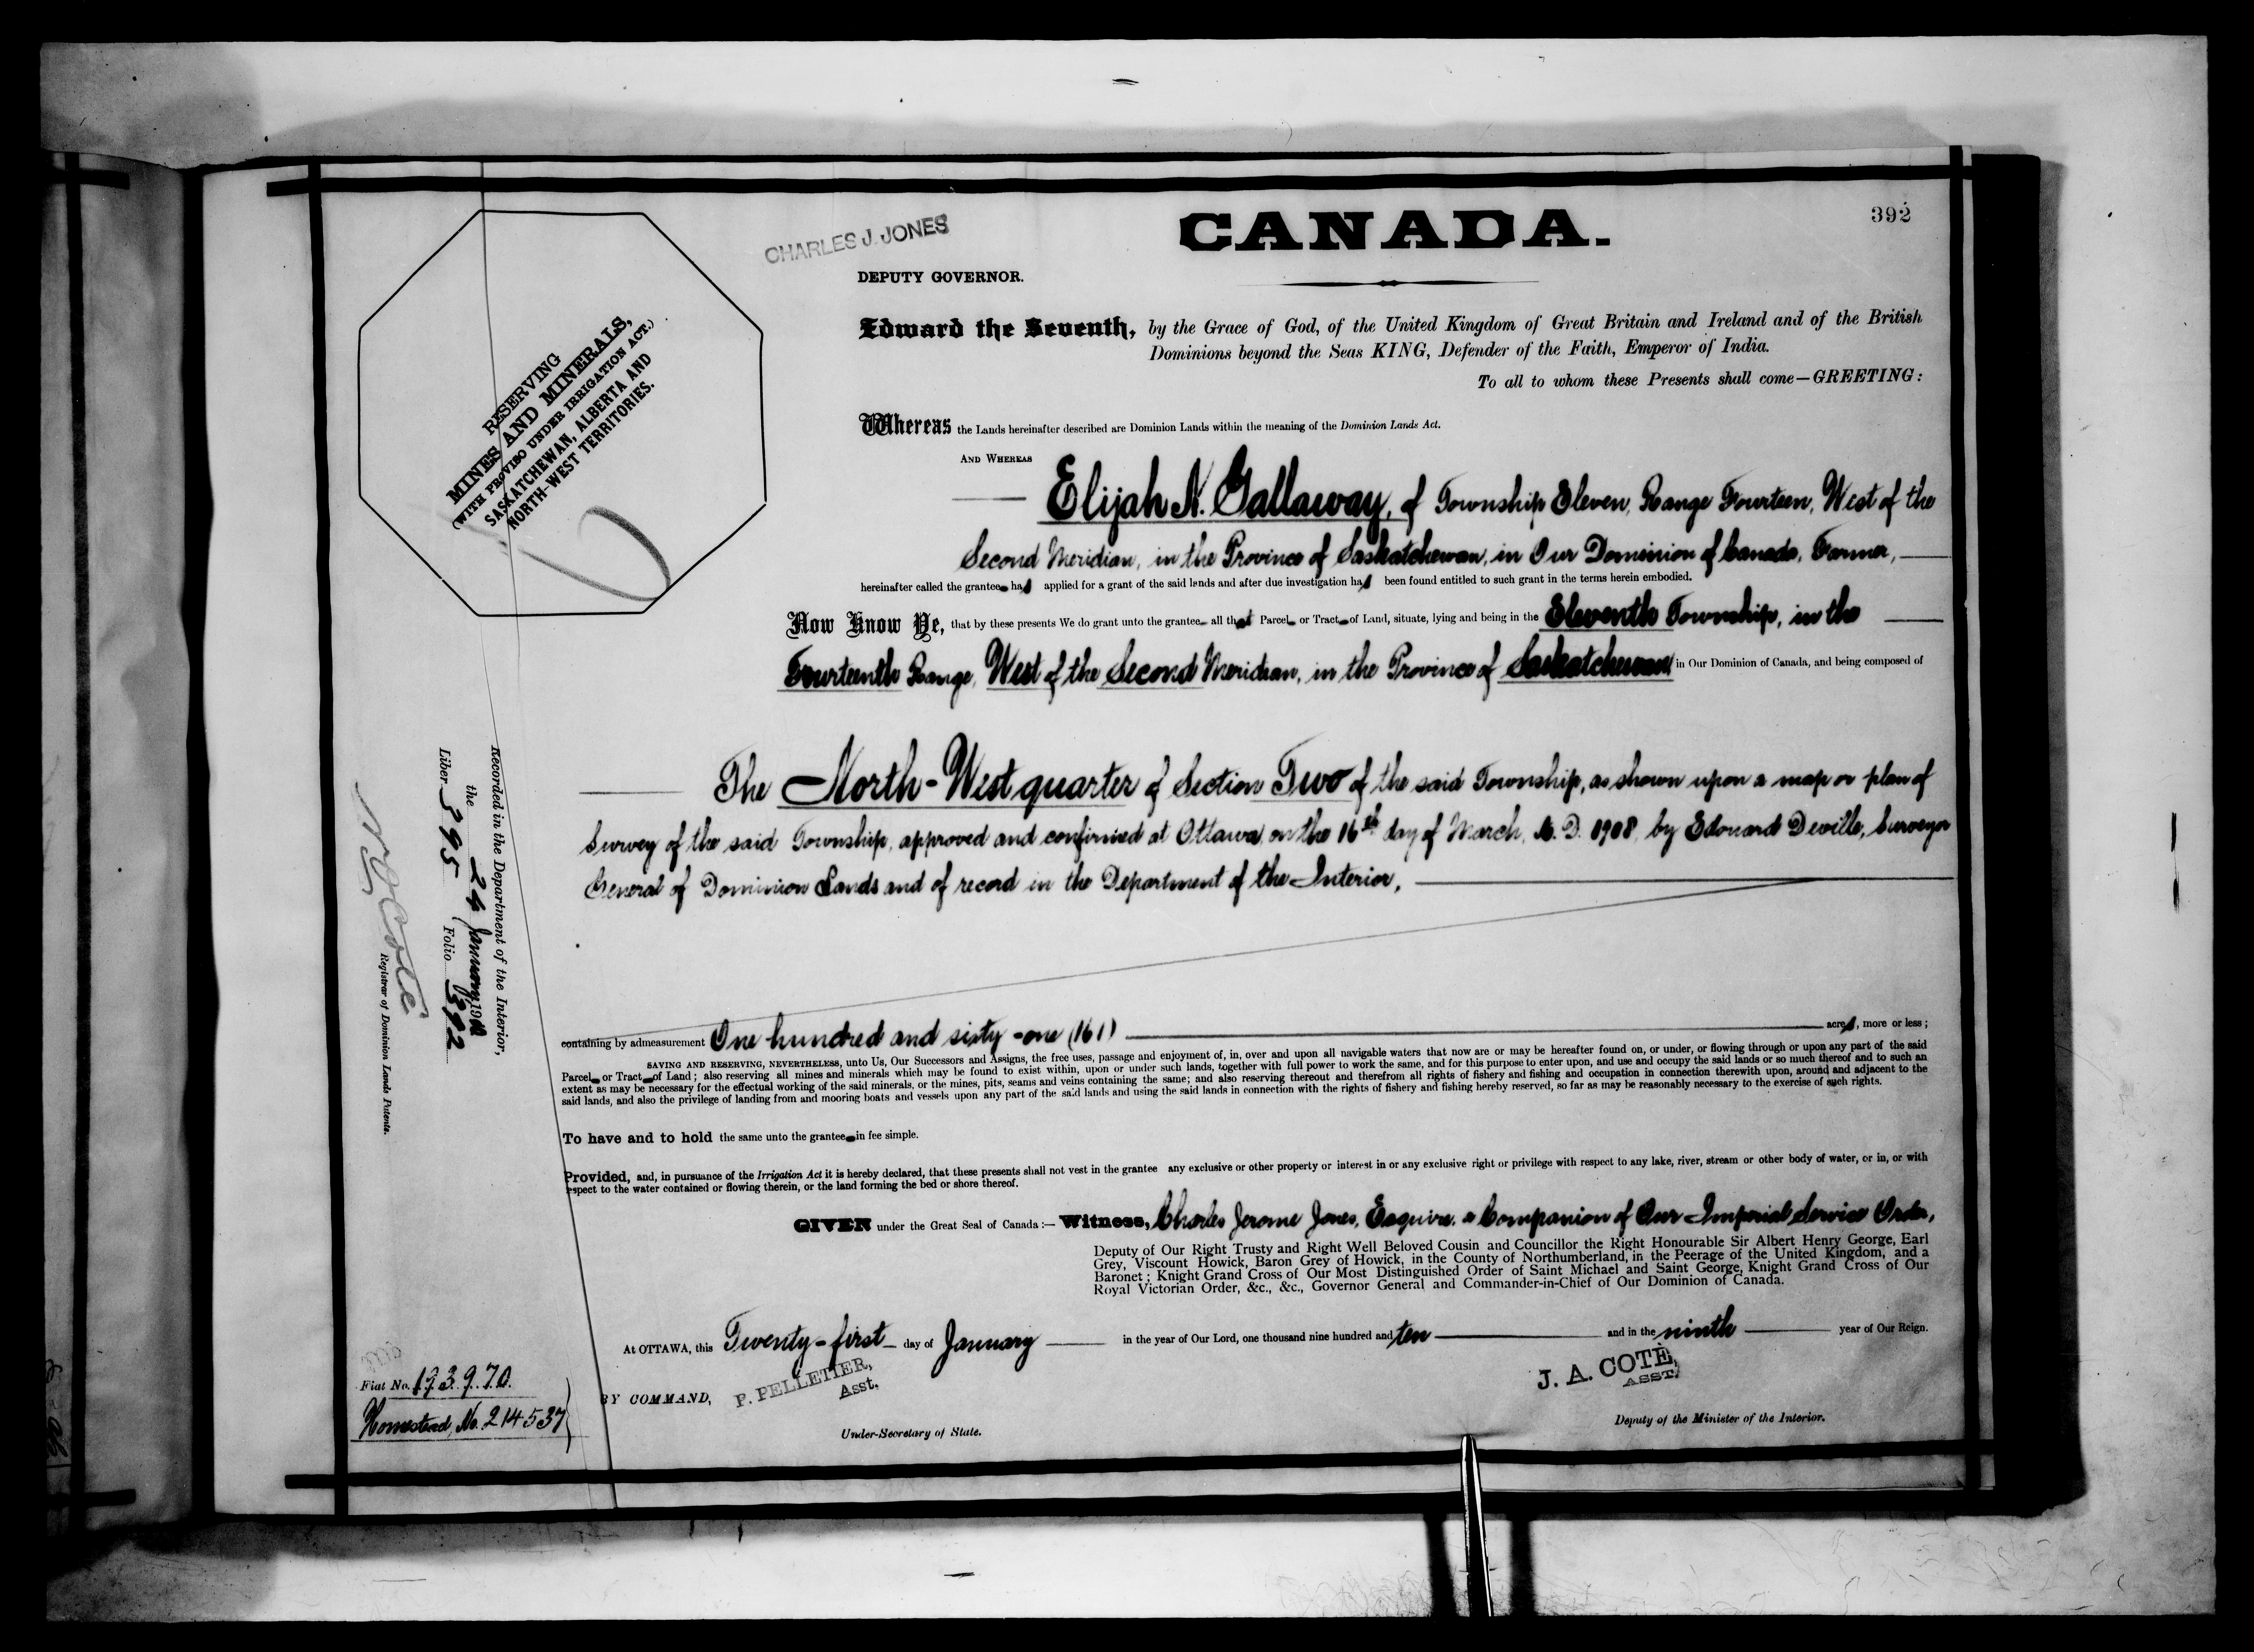 392
CHARLES J. JONES
CANADA.
DEPUTY GOVERNOR.
RESERVING
MINES AND MINERALS,
(WITH PROVISO UNDER IRRIGATION ACT.)
SASKATCHEWAN, ALBERTA AND
NORTH-WEST TERRITORIES.
Edward the Seventh, by the Grace of God, of the United Kingdom of Great Britain and Ireland and of the British
Dominions beyond the Seas KING, Defender of the Faith, Emperor of India.
To all to whom these Presents shall come—GREETING:
Whereas the Lands hereinafter described are Dominion Lands within the meaning of the Dominion Lands Act.
AND WHEREAS
Elijah N. Gallaway, of Township Eleven, Range Fourteen, West of the
Second Meridian, in the Province of Saskatchewan, in Our Dominion of Canada, Farmer,
hereinafter called the grantee has applied for a grant of the said lands and after due investigation has been found entitled to such grant in the terms herein embodied.
Now Know Ye, that by these presents We do grant unto the grantee all that Parcel or Tract of Land, situate, lying and being in the Eleventh Township, in the
Fourteenth Range, West of the Second Meridian, in the Province of Saskatchewan in Our Dominion of Canada, and being composed of
The North-West quarter of Section Two of the said Township, as shown upon a map or plan of
Survey of the said Township, approved and confirmed at Ottawa, on the 16th day of March, A. D. 1908, by Edouard Deville, Surveyor
General of Dominion Lands and of record in the Department of the Interior,
containing by admeasurement One hundred and sixty-one (161) acres, more or less;
SAVING AND RESERVING, NEVERTHELESS, unto Us, Our Successors and Assigns, the free uses, passage and enjoyment of, in, over and upon all navigable waters that now are or may be hereafter found on, or under, or flowing through or upon any part of the said
Parcel or Tract of Land; also reserving all mines and minerals which may be found to exist within, upon or under such lands, together with full power to work the same, and for this purpose to enter upon, and use and occupy the said lands or so much thereof and to such an
extent as may be necessary for the effectual working of the said minerals, or the mines, pits, seams and veins containing the same; and also reserving thereout and therefrom all rights of fishery and fishing and occupation in connection therewith upon, around and adjacent to the
said lands, and also the privilege of landing from and mooring boats and vessels upon any part of the said lands and using the said lands in connection with the rights of fishery and fishing hereby reserved, so far as may be reasonably necessary to the exercise of such rights.
To have and to hold the same unto the grantee in fee simple.
Provided, and, in pursuance of the Irrigation Act it is hereby declared, that these presents shall not vest in the grantee any exclusive or other property or interest in or any exclusive right or privilege with respect to any lake, river, stream or other body of water, or in, or with
respect to the water contained or flowing therein, or the land forming the bed or shore thereof.
GIVEN under the Great Seal of Canada:— Witness, Charles Jerome Jones, Esquire, a Companion of Our Imperial Service Order,
Deputy of Our Right Trusty and Right Well Beloved Cousin and Councillor the Right Honourable Sir Albert Henry George, Earl
Grey, Viscount Howick, Baron Grey of Howick, in the County of Northumberland, in the Peerage of the United Kingdom, and a
Baronet; Knight Grand Cross of Our Most Distinguished Order of Saint Michael and Saint George, Knight Grand Cross of Our
Royal Victorian Order, &c., &c., Governor General and Commander-in-Chief of Our Dominion of Canada.
At OTTAWA, this Twenty-first day of January in the year of Our Lord, one thousand nine hundred and ten and in the ninth year of Our Reign.
BY COMMAND,
P. PELLETIER,
Asst.
Under-Secretary of State.
J. A. COTÉ,
ASST.
Deputy of the Minister of the Interior.
Recorded in the Department of the Interior,
the 24 January, 1910
Liber 395 Folio 392
N O Coté
Registrar of Dominion Lands Patents.
Fiat No. 193970.
Homestead, No. 214537